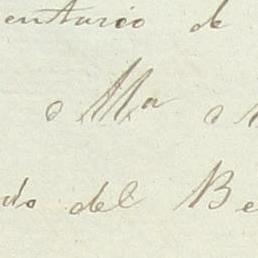 entario de
o Ma o
do del Be